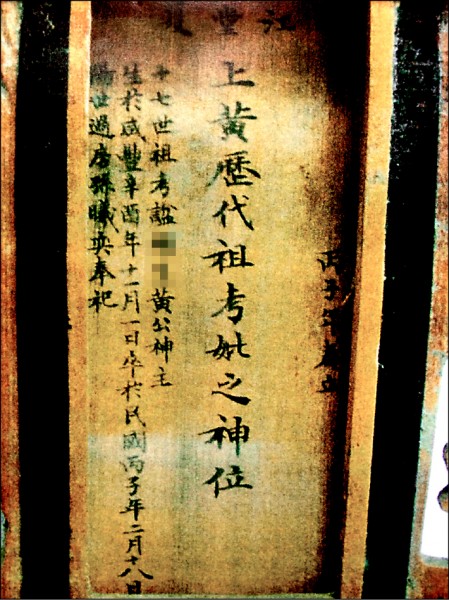 江豐
丙子年
上黄歷代祖考妣之神位
十七世祖考諡 黄公神主
生於咸豐辛酉年十一月一日卒於民國丙子年二月十八日
陽世過房孫曦英奉祀